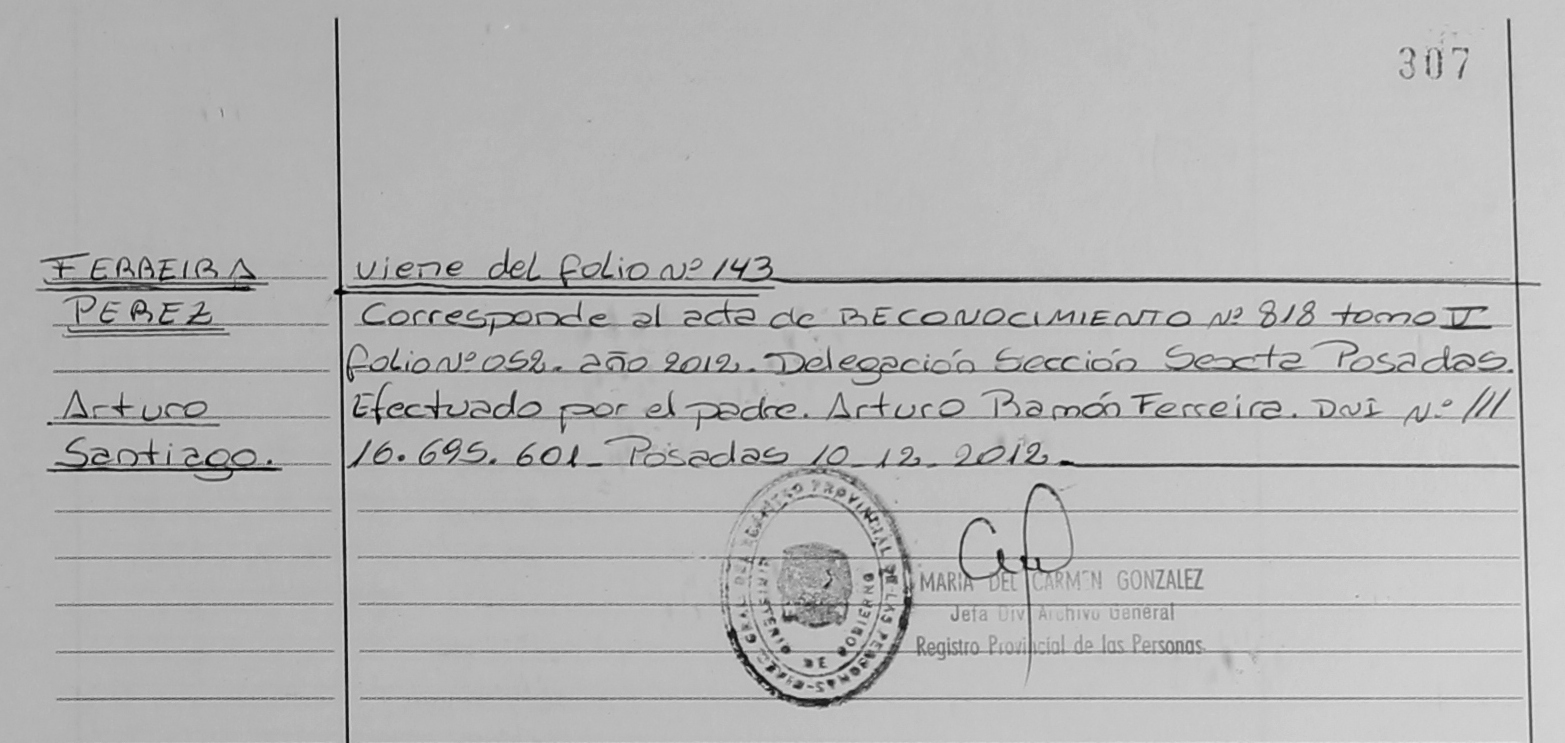 307
FERREIRA
PEREZ
Arturo
Santiago.
viene del folio Nº 143
Corresponde al acta de RECONOCIMIENTO Nº 818 tomo V
folio Nº 052. año 2012. Delegación Sección Sexta Posadas.
Efectuado por el padre. Arturo Ramón Ferreira. DNI Nº ///
16.695.601_ Posadas 10_12_2012_
PROVINCIAL DE LAS PERSONAS
MINISTERIO DE GOBIERNO
MARIA DEL CARMEN GONZALEZ
Jefa Div Archivo General
Registro Provincial de las Personas